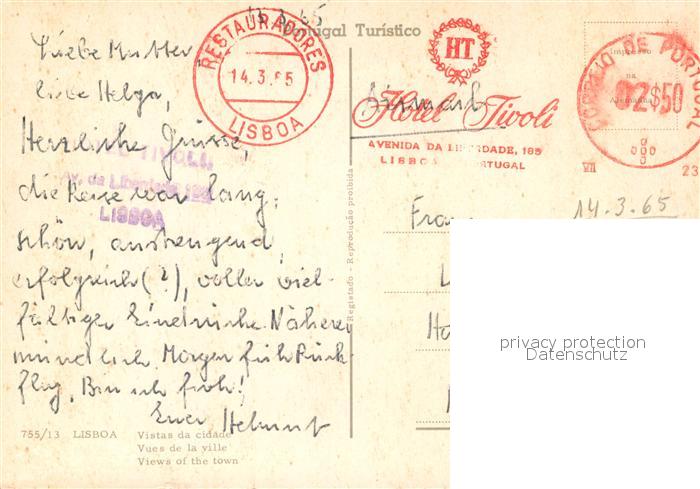 Portugal Turístico
RESTAURADORES
14.3.65
LISBOA
HT
Hotel Tivoli
AVENIDA DA LIBERDADE, 185
LISBOA PORTUGAL
CORREIO DE PORTUGAL
02$50
Impresso
na
Alemanha
VII
23
Liebe Mutter
liebe Helga,
Herzliche Grüsse,
die Reise war lang,
schön, anstrengend,
erfolgreich (?), voller viel-
fältiger Eindrücke. Näheres
mündlich. Morgen früh Rück-
flug, Bin ich froh!
Euer Helmut
TIVOLI,
Av. da Liberdade
LISBOA
Registado - Reprodução proibida
14.3.65
privacy protection
Datenschutz
755/13 LISBOA Vistas da cidade
Vues de la ville
Views of the town